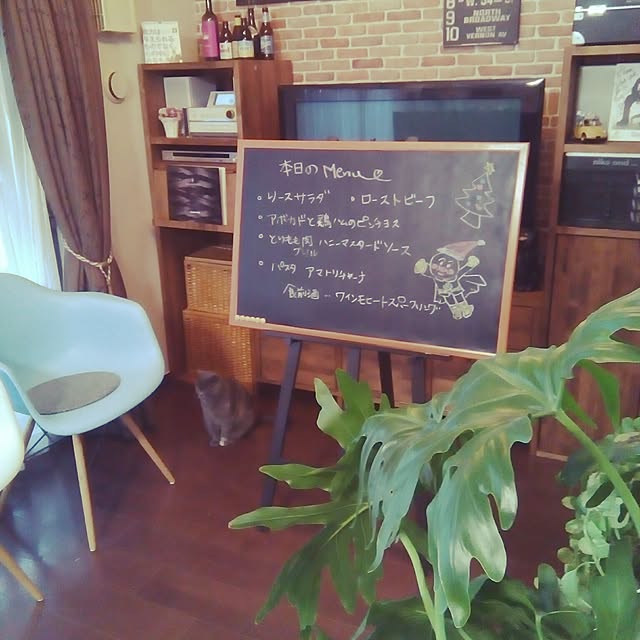 8
9
10
W. 54
NORTH
BROADWAY
WEST
VERNON AV
本日の Menu
・リースサラダ ・ローストビーフ
・アボカドと鶏ハムのピンチョス
・とりもも肉 ハニーマスタードソース
グリル
・パスタ アマトリチャーナ
食前酒 … ワインモヒートスパークリング